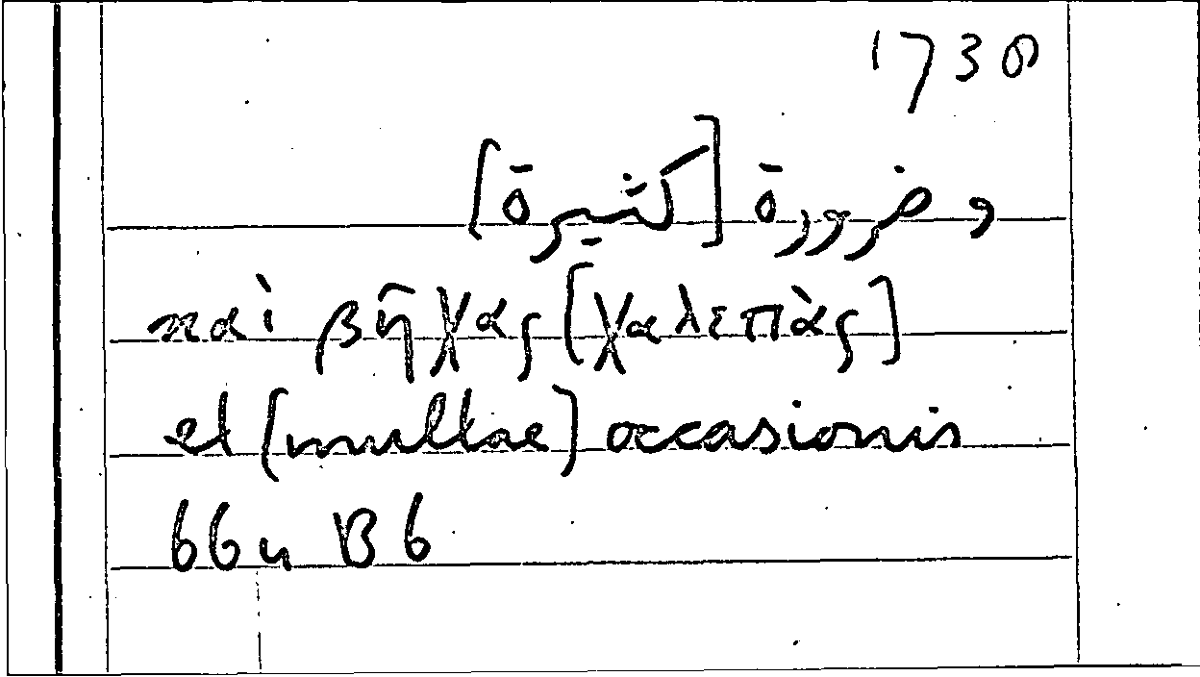 1730
و ضرورة [كثيرة]
καὶ βῆχας [χαλεπὰς]
et [multae] occasionis
66u B6